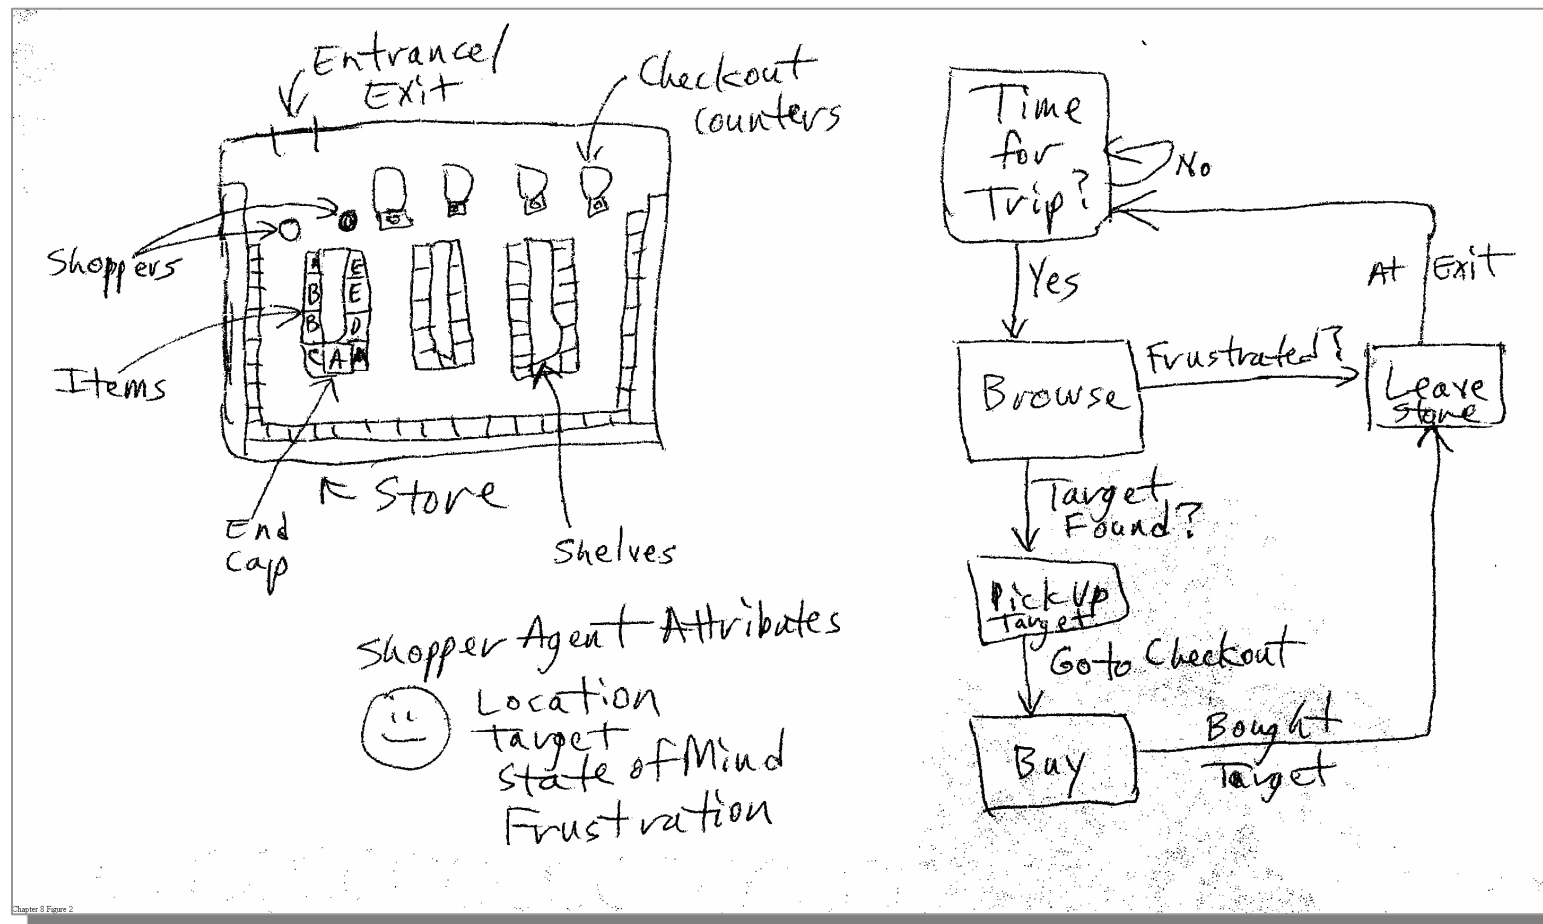 Entrance/
Exit
Checkout
counters
Shoppers
Items
A
B
B
C
A
E
E
D
End
Cap
Store
Shelves
Shopper Agent Attributes
Location
Target
State of Mind
Frustration
Time
for
Trip?
No
Yes
At Exit
Browse
Frustrated?
Leave
Store
Target
Found?
Pick Up
Target
Go to Checkout
Buy
Bought
Target
Chapter 8 Figure 2